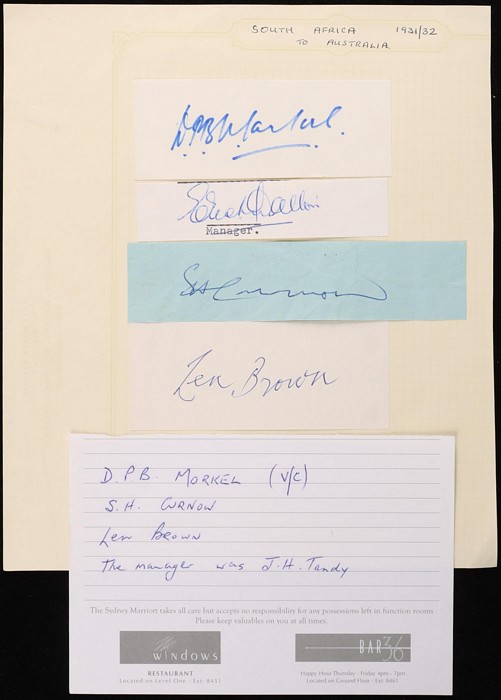 SOUTH AFRICA 1931/32
TO AUSTRALIA
DPB Morkel.
Manager.
S H Curnow
Len Brown
D.P.B. MORKEL (V/C)
S.H. CURNOW
Len BROWN
The manager was J.H. Tandy
The Sydney Marriott takes all care but accepts no responsibility for any possessions left in function rooms
Please keep valuables on you at all times.
WINDOWS
RESTAURANT
Located on Level One - Ext. 8451
BAR 36
Happy Hour Thursday - Friday 4pm - 7pm
Located on Ground Floor - Ext. 8461